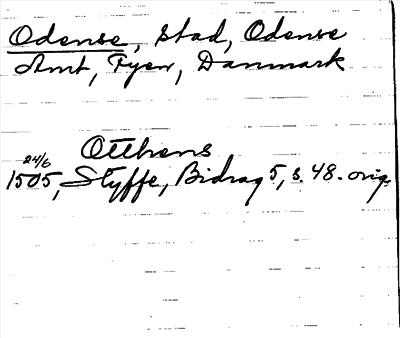 Odense, stad, Odense
Amt, Fyen, Danmark
Otthens
24/6
1505, Styffe, Bidrag 5, s. 48. orig.